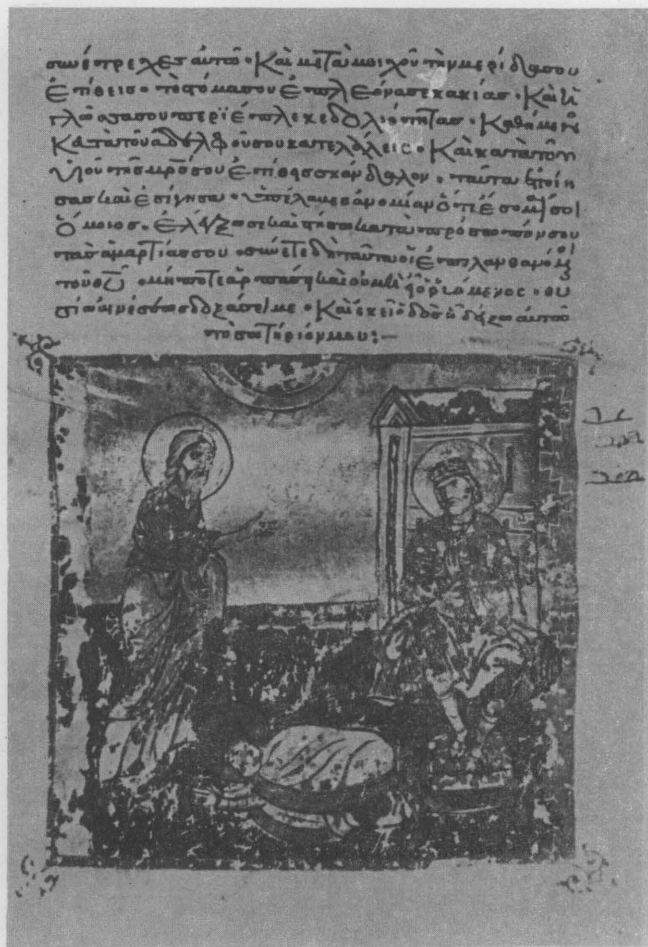 συνέτρεχες αὐτῶ· Καὶ μετὰ μοιχοῦ τὴν μερίδα σου
ἐτίθεις· τὸ στόμα σου ἐπλεόνασε κακίας· Καὶ ἡ
γλῶσσα σου περιέπλεκε δολιότητας· Καθήμενος
Κατὰ τοῦ ἀδελφοῦ σου κατελάλεις· Καὶ κατὰ τοῦ
υἱοῦ τῆς μρς σου ἐτίθεις σκάνδαλον· ταῦτα ἐποίη
σας καὶ ἐσίγησα· ὑπέλαβες ἀνομίαν ὅτι ἔσομαί σοι
ὅμοιος· ἐλέγξω σε καὶ στήσω κατὰ πρόσωπόν σου
τὰς ἁμαρτίας σου· σύνετε δὴ ταῦτα οἱ ἐπιλανθανόμ
τοῦ θυ· μήποτε ἁρπάση καὶ οὐ μὴ ἦ ὁ ῥυόμενος· θυ
σία αἰνέσεως δοξάσει με· Καὶ ἐκεῖ ὁδὸς ἧ δείξω αὐτῶ
τὸ σωτήριόν μου:—